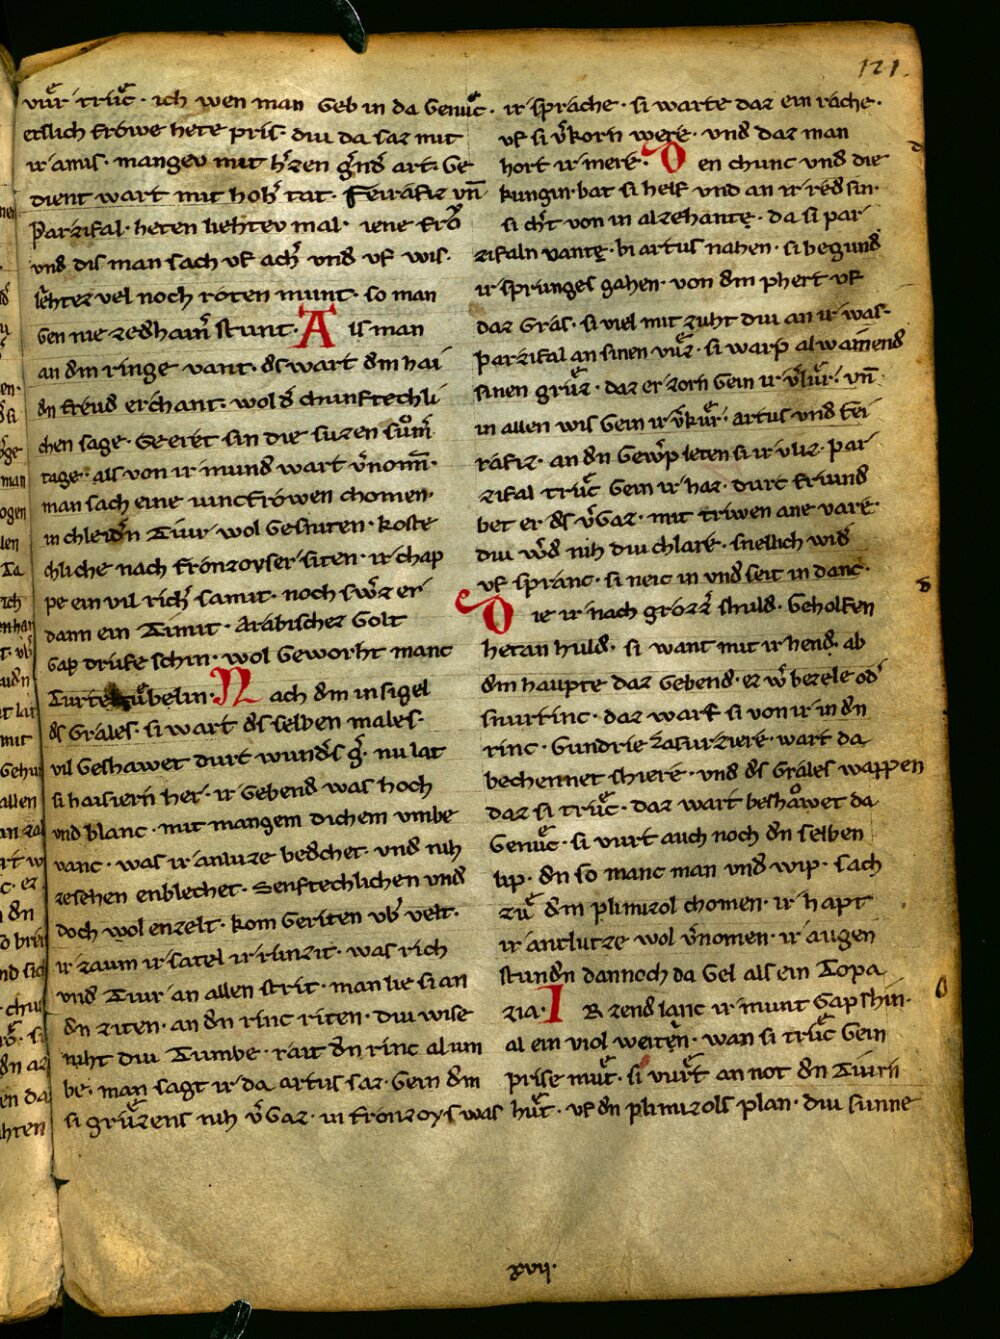 121.
vůr trůc · ich wen man geb in da genůc ·
etslich fröwe hete pris · diu da saz mit
ir amis · mangev mit h̾zen g̾nd̾ art · ge
dient wart mit hoh̾ tat · feirafiz vn̄
Parzifal · heten liehtev mal · iene fro
vnd̾ dis man sach vf ach̾ vnd̾ vf wis ·
lehter vel noch roten munt · so man
gen nie zed̾ham̾ stunt · Als man
an dm ringe vant · ds wart dm hai
dn freud erchant · wol d̾ chunftechli
chen sage · Geeret sin die suzen sům̾
tage · als von ir mund wart v̾nom̄ ·
man sach eine iuncfröwen chomen ·
in chleid̾n Tiur wol gesniten · koste
chliche nach fronzoyser siten · ir chap
pe ein vil rich̾ samit · noch sw̾z er
dann ein Timit · Arabischez Golt
gap drufe schin · wol geworht manc
Turteltůbelin · Nach dm insigel
ds Grales · si wart ds selben males ·
vil geshawet durt wund̾s g̾ · nu lat
si haisiern her · ir gebend was hoch
vnd blanc · mit mangem dichem vmbe
vanc · was ir antluze bedchet · vnd nih
zesehen enblechet · Senftechlichen vnd
doch wol enzelt · kom geriten vb̾ velt ·
ir zaum ir satel ir runzit · was rich
vnd Tiur an allen strit · man lie si an
dn ziten · an dn rinc riten · diu wise
niht diu Tumbe · rait dn rinc al um
be · man sagt ir da artus saz · gein dm
si grůzens nih v̾gaz · in fronzoys was
ir sprache · si warte daz ein rache ·
vf si v̾korn were · vnd daz man
hort ir mere · Den chunc vnd die
kungin · bat si helf vnd an ir red sin ·
si ch̾t von in alzehante · da si par
zifaln vante · bi artus nahen · si begund
ir sprunges gahen · von dm phert vf
daz Gras · si viel mit zuht diu an ir was ·
parzifal an sinen vůz · si warp al wainend
sinen grůz · daz er zorn gein ir v̾lůr · vn̄
in allen wis gein ir v̾kůr · artus vnd fei
rafiz · an dn gew̾p leten si ir vliz · par
zifal trůc gein ir haz · durt friund
bet er ds v̾gaz · mit triwen ane vare ·
diu w̾d nih diu chlare · snellich wid̾
vf spranc · si neic in vnd seit in danc ·
Die ir nach grozz̾ shuld · geholfen
hetan huld · si want mit ir hend · ab
dm haupte daz gebend · ez w̾ bezele od̾
snurrinc · daz warf si von ir in dn
rinc · Gundrie Lasurziere · wart da
bechennet shiere · vnd ds grales wappen
daz si trůc · daz wart beshöwet da
genůc · si vůrt auch noch dn selben
lip · dn so manc man vnd wip · sach
zů dm plimizol chomen · ir hapt
ir antlutze wol v̾nomen · ir augen
stundn dannoch da gel als ein Topa
zia · IR zend lanc ir munt gap shin ·
al ein viol weiten · wan si trůc gein
prise můt · si vůrt an not dn Tiurn
hůt · vf dn plimizols plan · diu sunne
xvij ·